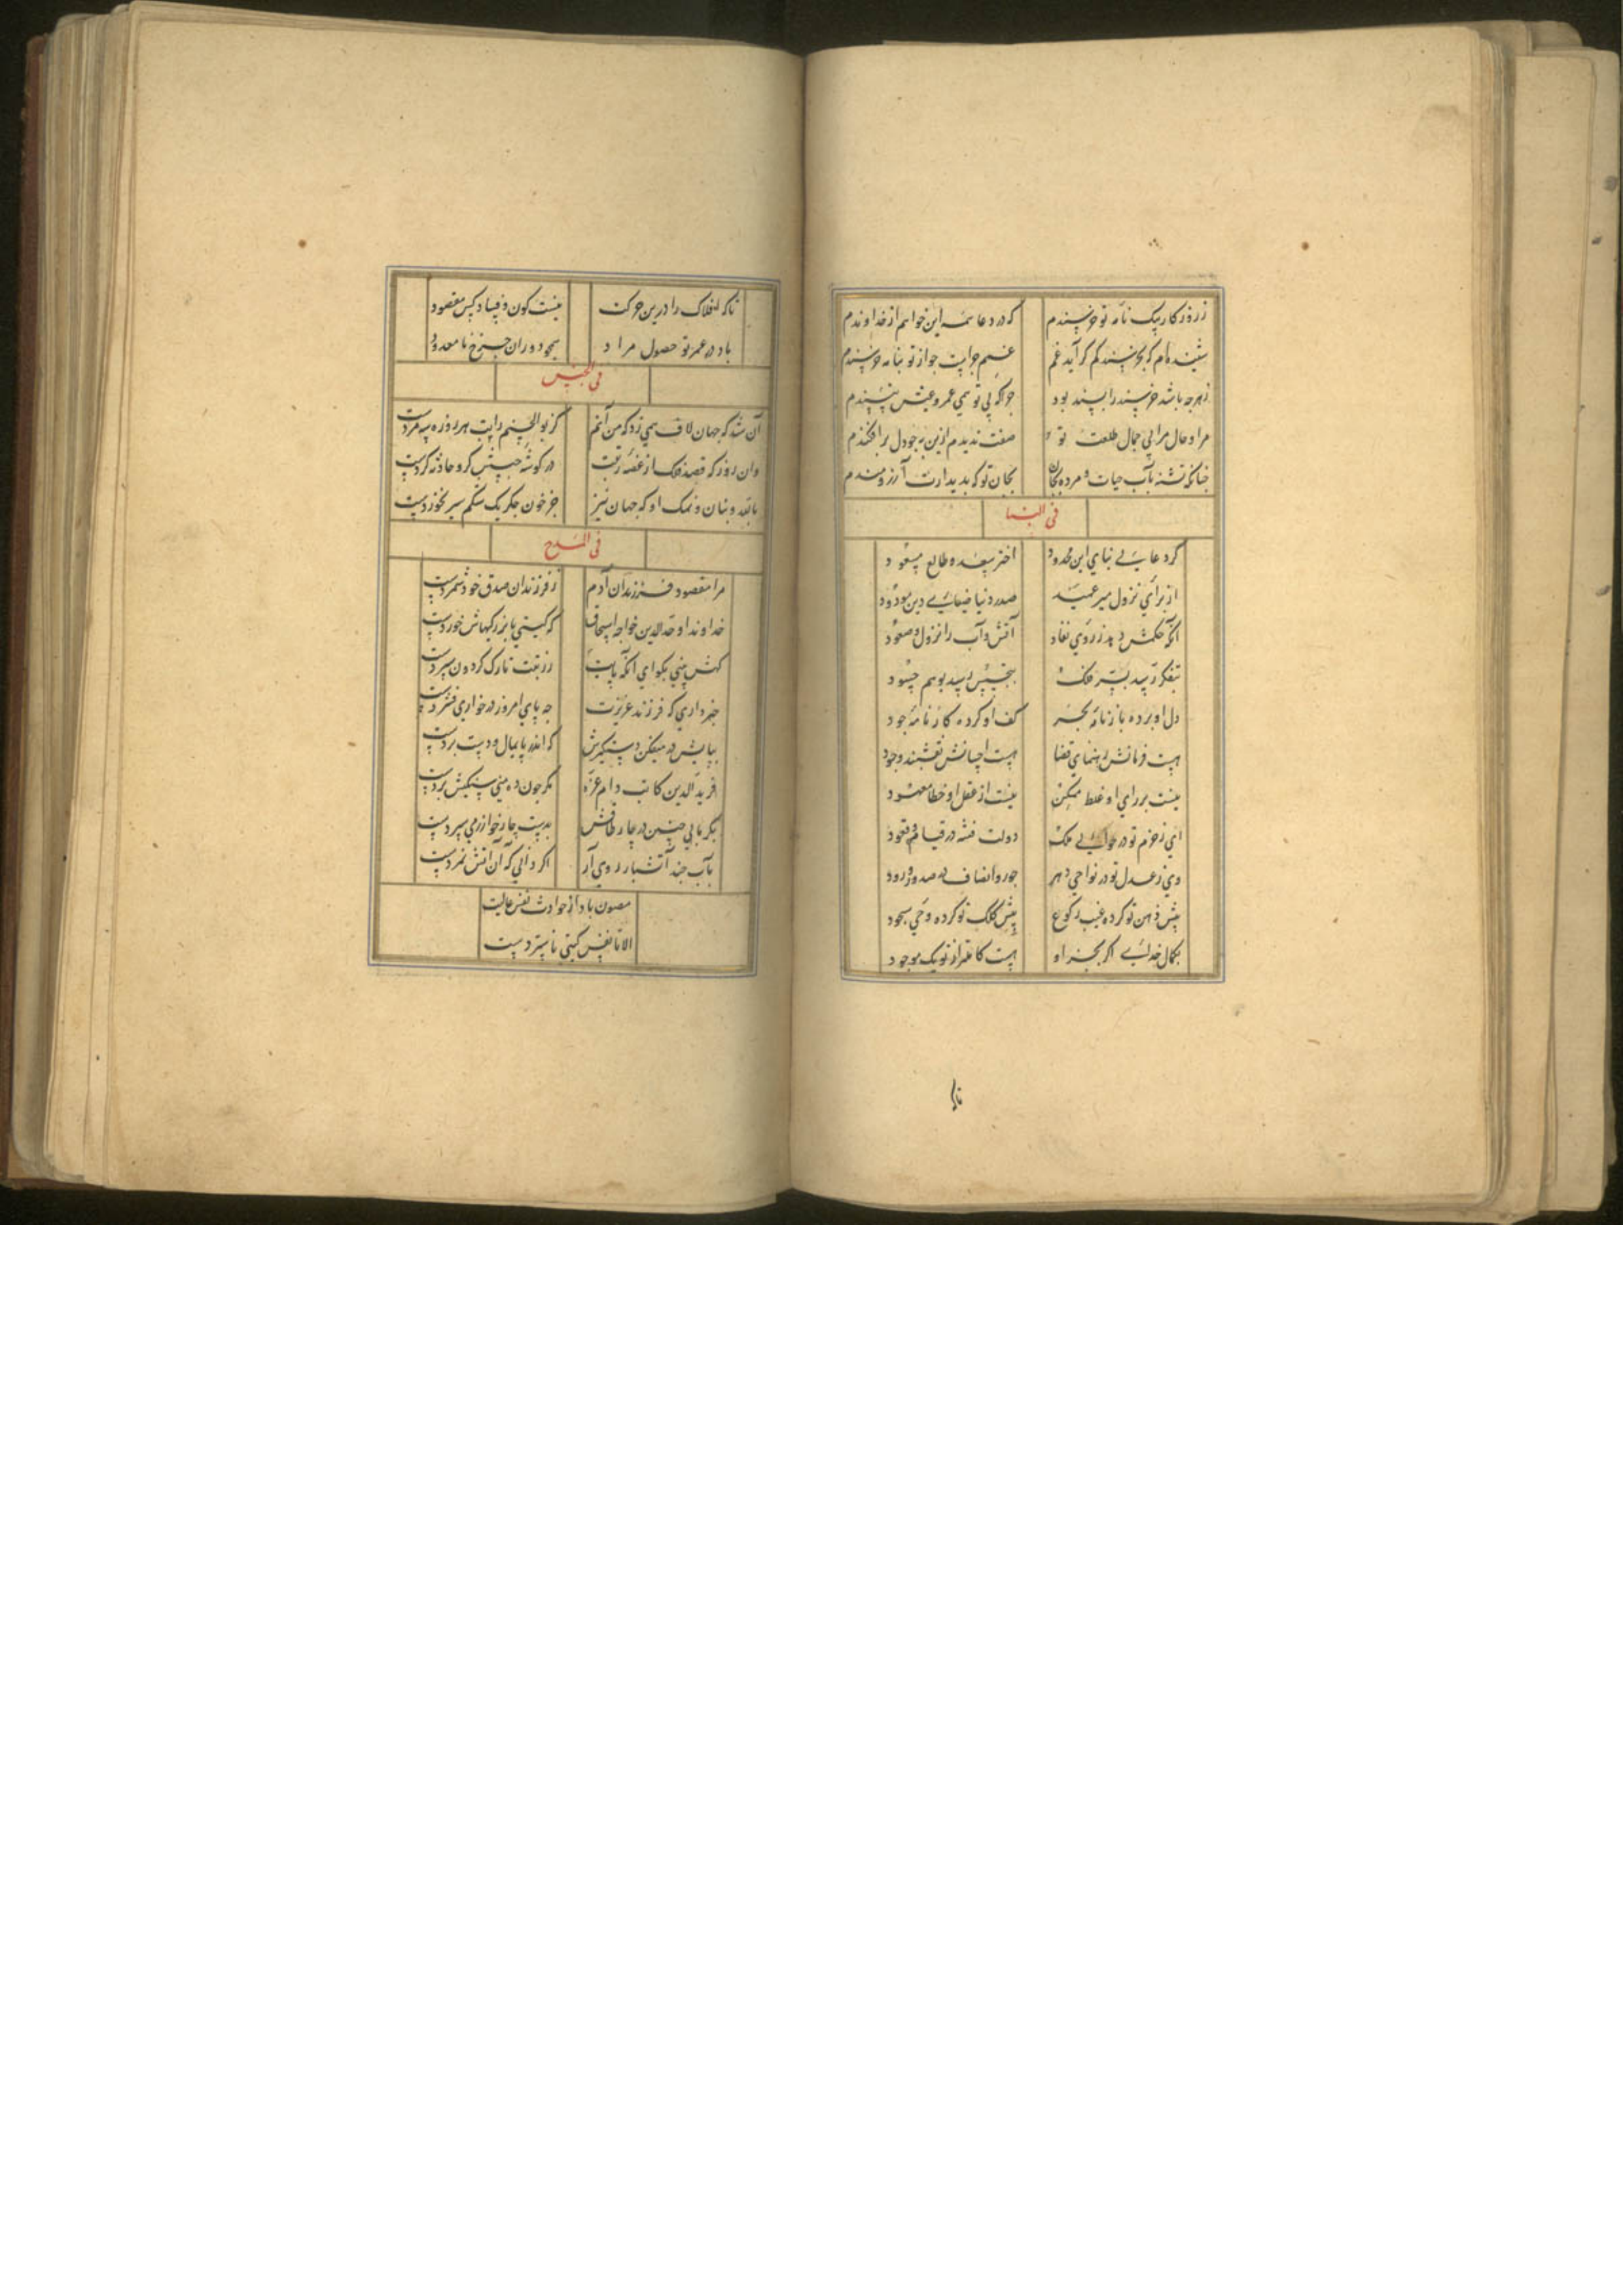 ز روزکار بیک نامه تو خرسندم
که در دعا همه این خواهم از خداوندم
شنیده‌ام که بخرسند کم کراید غم
غمم چراست جو از تو بنامه خرسندم
زهرجه باشد خرسند را بسند بود
جراکه بی تو همی عمر و عیش نپسندم
مرا و حال مرا بی جمال طلعت تو
صفت ندیدم ازین به جو دل برافکندم
جنانکه تشنه بآب حیات و مرده بجان
بجان تو که بدیدارت آرزومندم
فی الثنا
کرد عالی بنای این محدود
اختر سعد و طالع مسعود
از برای نزول میر عمید
صدر دنیا ضیای دین مودود
آنکه حکمش دهد ز روی نفاد
آتش و آب را نزول و صعود
بتفکر رسد بسر فلک
بتجسس رسد بوهم حسود
دل او برده بارنامه بحر
کف او کرده کارنامه جود
هست فرمانش رهنمای قضا
هست احسانش نقشبند وجود
نیست بر رای او غلط ممکن
نیست از عقل او خطا معهود
ای ز حزم تو در حوالی ملک
دولت فتنه در قیام و قعود
وی ز عدل تو در نواحی دهر
جور و انصاف در صدور و ورود
پیش ذهن تو کرده غیب رکوع
پیش کلک تو کرده وحی سجود
بکمال خدای اکر بجز او
هست کاملتر از تو یک موجود
تاکه
تاکه افلاک را درین حرکت
نیست کون و فساد کس مقصود
باد در عمر تو حصول مراد
بجو دوران جرخ نا معدود
فی الجنس
آن شد که جهان لاف همی زد که من آنم
کز بوالحسنم راتب هرروزه بمردست
وان روز که قصد فلک از غصه رتبت
در کوشه جیبش کرو حادثه کردست
بالله و بنان و نمک او که جهان نیز
جز خون جکر یک شکم سیر نخوردست
فی المدح
مرا مقصود فرزندان آدم
ز فرزندان صدق خود شمردست
خداوند اوحدالدین خواجه اسحاق
که کیتی با بزرکیهاش خوردست
کهش بینی بکو ای آنکه پایت
ز رتبت تارک کردون سپردست
خبر داری که فرزند عزیزت
جه پای امروز در خواری فشردست
بپایش در میفکن دست کیرش
که اندر پایمال و دست بردست
فرید الدین کاتب دام عزه
مکر جون ده منی سیکیش بردست
بکرمابی جنین در جار طاقش
بدست جار خوارزمی سپردست
بآب جند آتشبار روی آر
اکر دانی که آن آتش نمردست
مصون باد از حوادث نفس عالیت
الا تا نفس کیتی ناستردست